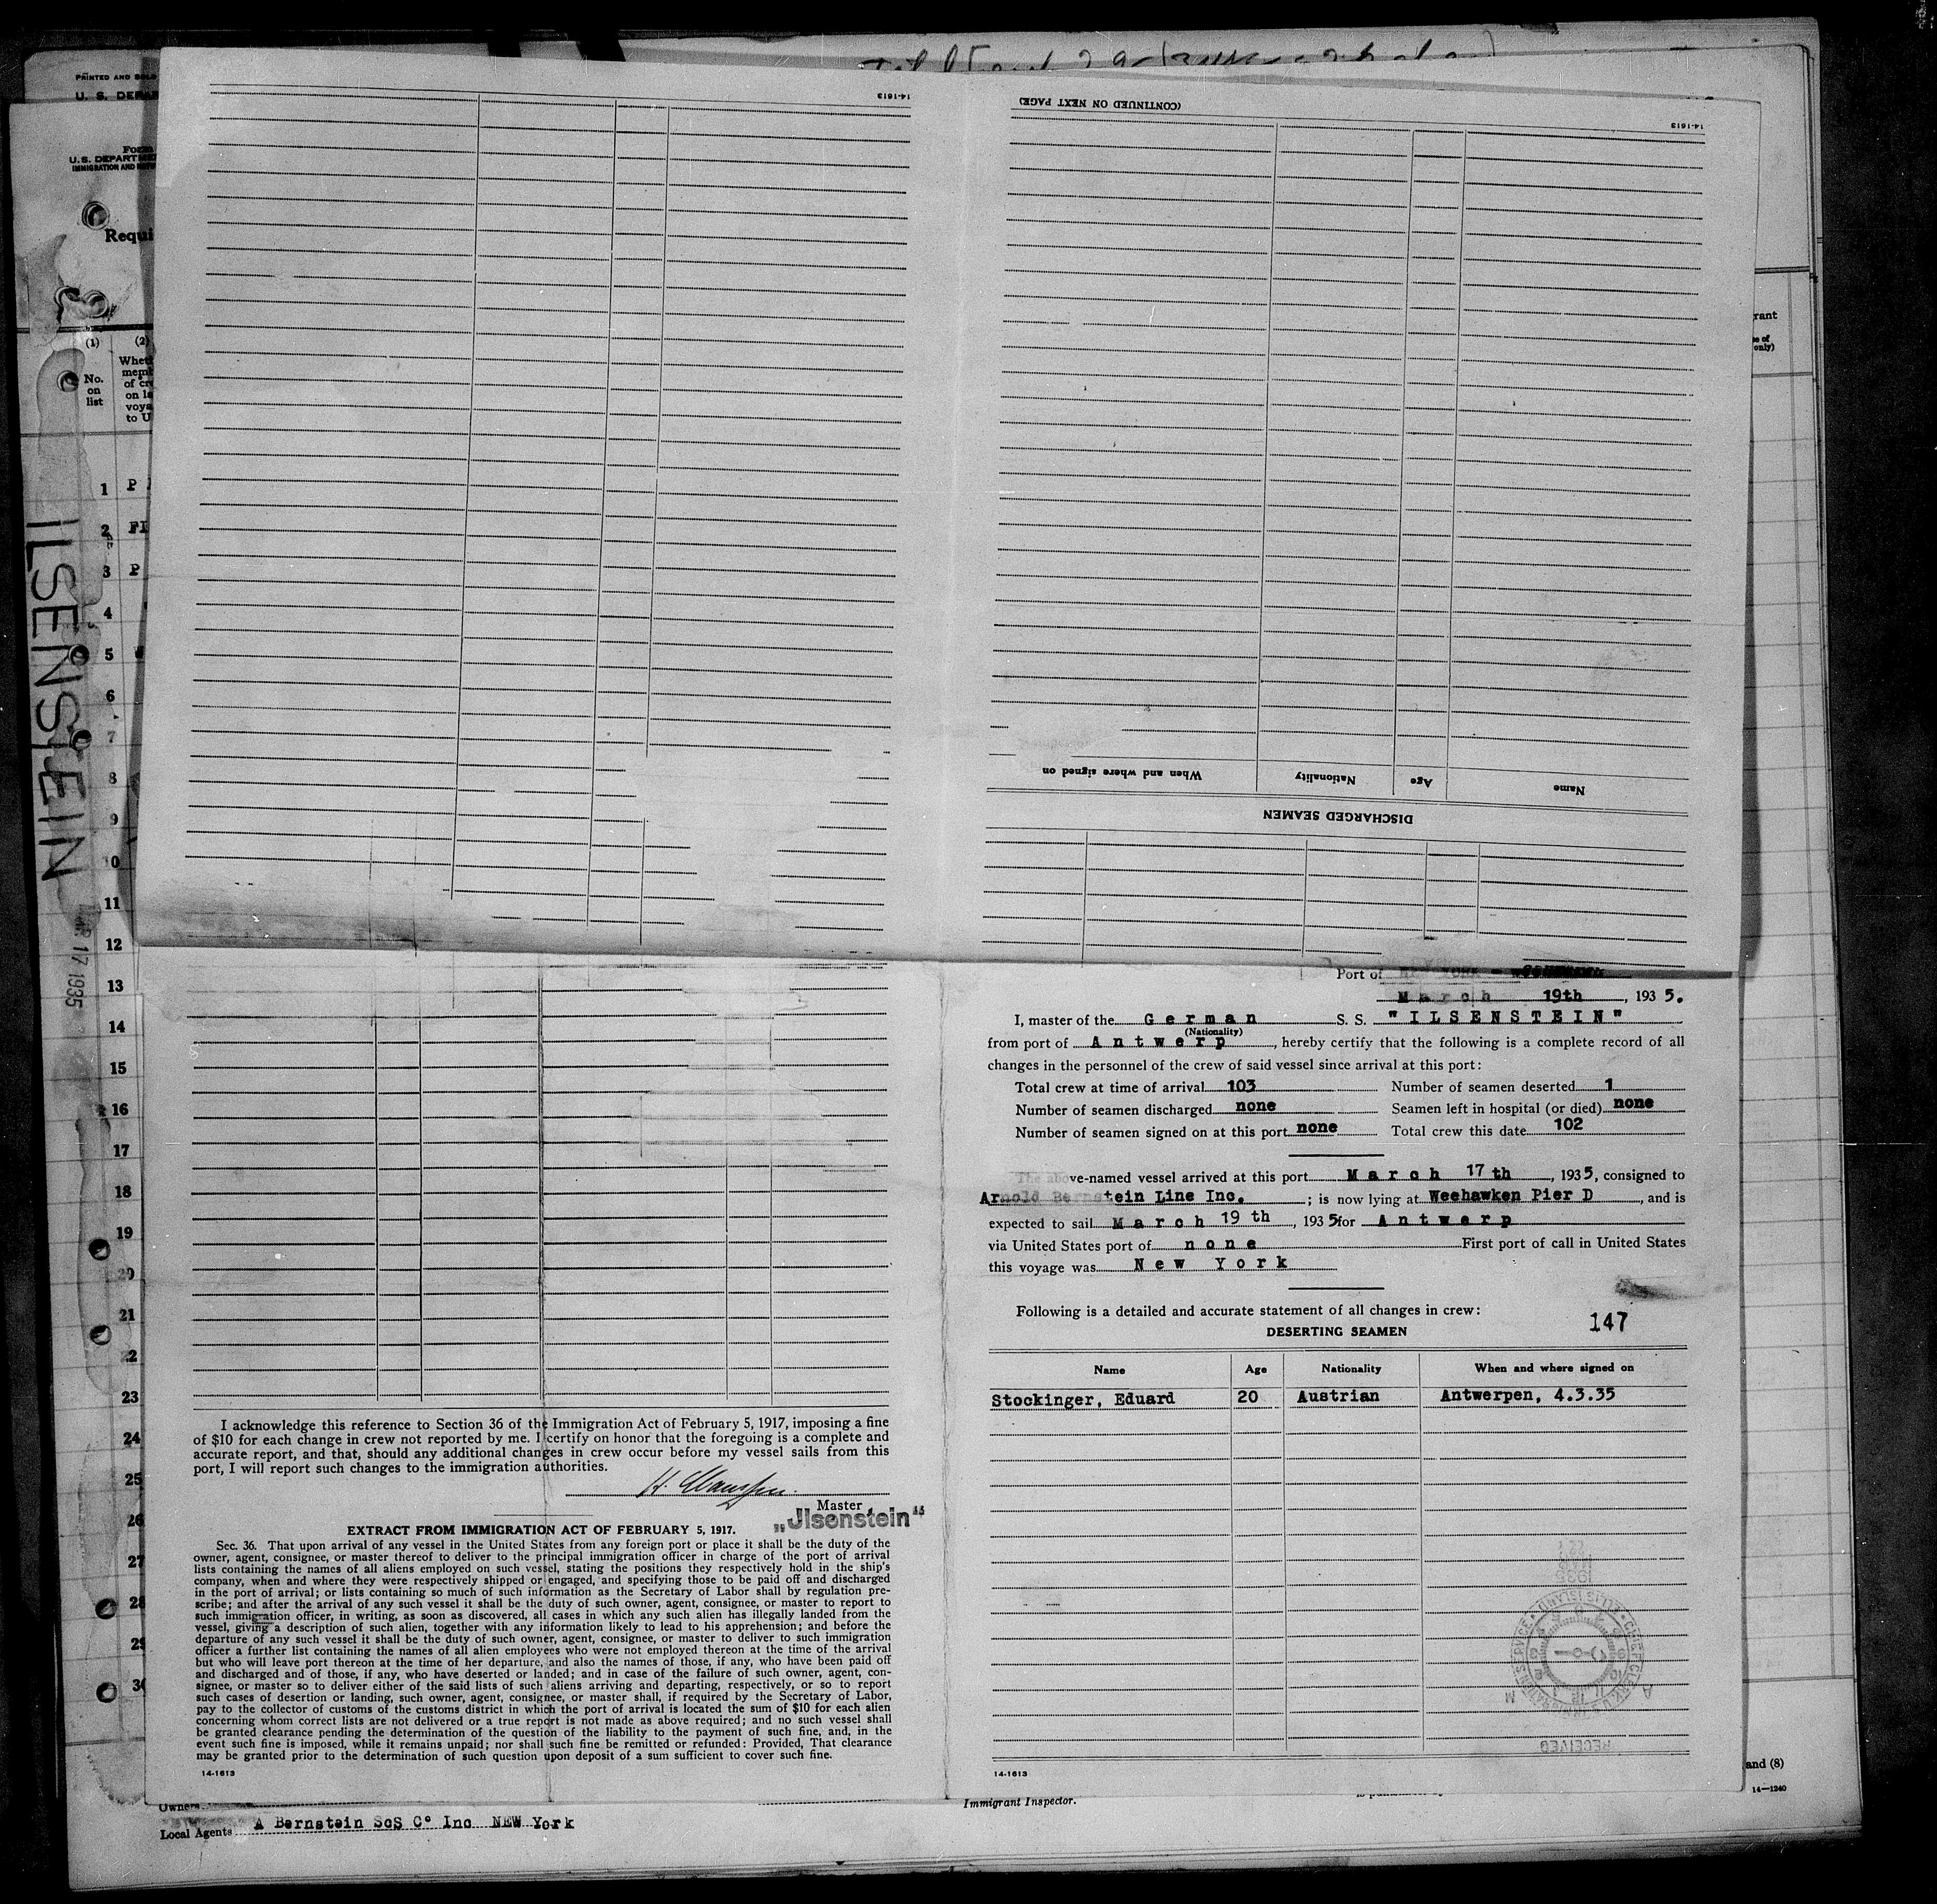 PRINTED AND SOLD
U. S. DEPAR
Form
U.S. DEPARTME
IMMIGRATION AND
Requi
(1)
(2)
No. on list
Wheth
memb
of cre
on la
voya
to U
1 P
2 FI
3 P
4
5
6
7
8
9
10
11
12
13
14
15
16
17
18
19
20
21
22
23
24
25
26
27
28
29
30
ILSENSTEIN
MAR 17 1935
rant
only)
14-1613
(CONTINUED ON NEXT PAGE)
14-1613
When and where signed on
Nationality
Age
Name
DISCHARGED SEAMEN
Port of NEW YORK -
March 19th, 1935.
I, master of the German S. S. "ILSENSTEIN"
(Nationality)
from port of Antwerp, hereby certify that the following is a complete record of all
changes in the personnel of the crew of said vessel since arrival at this port:
Total crew at time of arrival 103 Number of seamen deserted 1
Number of seamen discharged none Seamen left in hospital (or died) none
Number of seamen signed on at this port none Total crew this date 102
The above-named vessel arrived at this port March 17th, 1935, consigned to
Arnold Bernstein Line Inc. ; is now lying at Weehawken Pier D, and is
expected to sail March 19th, 1935 for Antwerp
via United States port of none First port of call in United States
this voyage was New York
Following is a detailed and accurate statement of all changes in crew:
147
DESERTING SEAMEN
Name Age Nationality When and where signed on
Stockinger, Eduard 20 Austrian Antwerpen, 4.3.35
RECEIVED
14-1613
I acknowledge this reference to Section 36 of the Immigration Act of February 5, 1917, imposing a fine
of $10 for each change in crew not reported by me. I certify on honor that the foregoing is a complete and
accurate report, and that, should any additional changes in crew occur before my vessel sails from this
port, I will report such changes to the immigration authorities.
Master
„Jlsenstein“
EXTRACT FROM IMMIGRATION ACT OF FEBRUARY 5, 1917.
Sec. 36. That upon arrival of any vessel in the United States from any foreign port or place it shall be the duty of the
owner, agent, consignee, or master thereof to deliver to the principal immigration officer in charge of the port of arrival
lists containing the names of all aliens employed on such vessel, stating the positions they respectively hold in the ship's
company, when and where they were respectively shipped or engaged, and specifying those to be paid off and discharged
in the port of arrival; or lists containing so much of such information as the Secretary of Labor shall by regulation pre-
scribe; and after the arrival of any such vessel it shall be the duty of such owner, agent, consignee, or master to report to
such immigration officer, in writing, as soon as discovered, all cases in which any such alien has illegally landed from the
vessel, giving a description of such alien, together with any information likely to lead to his apprehension; and before the
departure of any such vessel it shall be the duty of such owner, agent, consignee, or master to deliver to such immigration
officer a further list containing the names of all alien employees who were not employed thereon at the time of the arrival
but who will leave port thereon at the time of her departure, and also the names of those, if any, who have been paid off
and discharged and of those, if any, who have deserted or landed; and in case of the failure of such owner, agent, con-
signee, or master so to deliver either of the said lists of such aliens arriving and departing, respectively, or so to report
such cases of desertion or landing, such owner, agent, consignee, or master shall, if required by the Secretary of Labor,
pay to the collector of customs of the customs district in which the port of arrival is located the sum of $10 for each alien
concerning whom correct lists are not delivered or a true report is not made as above required; and no such vessel shall
be granted clearance pending the determination of the question of the liability to the payment of such fine, and, in the
event such fine is imposed, while it remains unpaid; nor shall such fine be remitted or refunded: Provided, That clearance
may be granted prior to the determination of such question upon deposit of a sum sufficient to cover such fine.
14-1613
and (8)
14-1240
Owners
Immigrant Inspector.
Local Agents A Bernstein SoS Co Inc NEW York